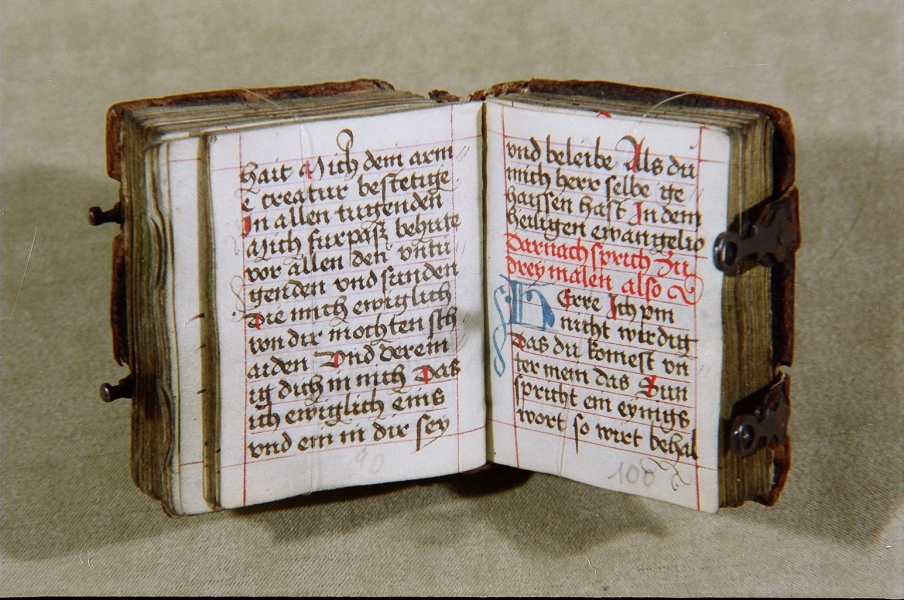 hait Mich dein arm
e creatur bestetige
In allen tugenden
auch furpaß behute
vor allen den untu
genden vnd sunden
Die mich ewiglich
von dir mochten sch
aiden Vnd verein
ig dich in mich Das
ich ewiglich eins
vnd ein in dir sey
90
vnd beleibe Als du
mich herr selbe ge
haissen hast In dem
heiligen ewangelio
Darnach sprich Zu
drey malen also
Herre Ich pin
nicht wirdig
Das du komest vn
ter mein das Sun
spricht ein eynigs
wort so wirt behal
100